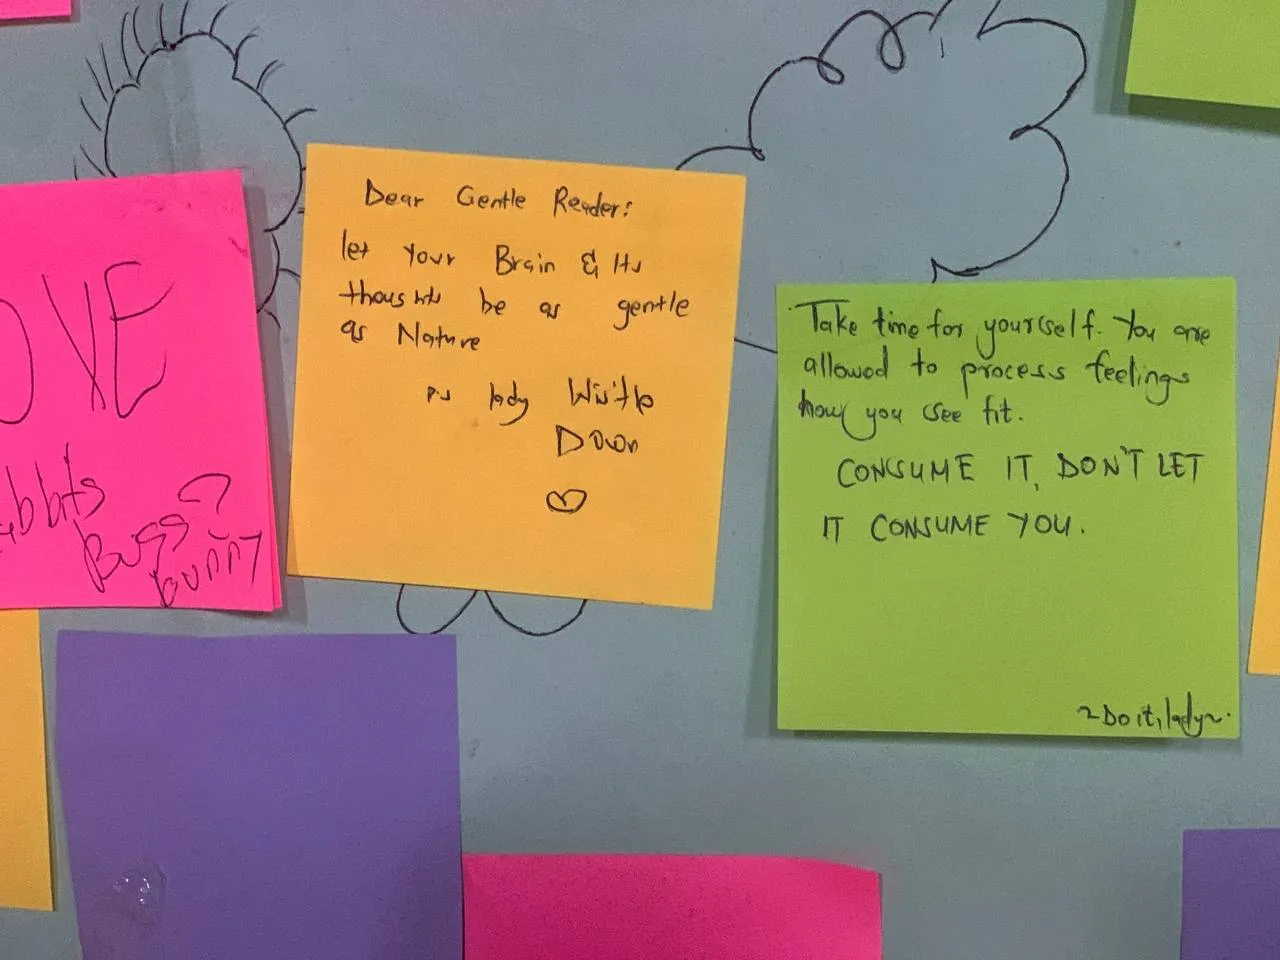 OVE
bbits
Bugs
bunny
Dear Gentle Reader:
let your Brain & Its
thoughts be as gentle
as Nature
lady Wistle
Down
Take time for yourself. You are
allowed to process feelings
how you see fit.
CONSUME IT, DON'T LET
IT CONSUME YOU.
~Do it, lady~.